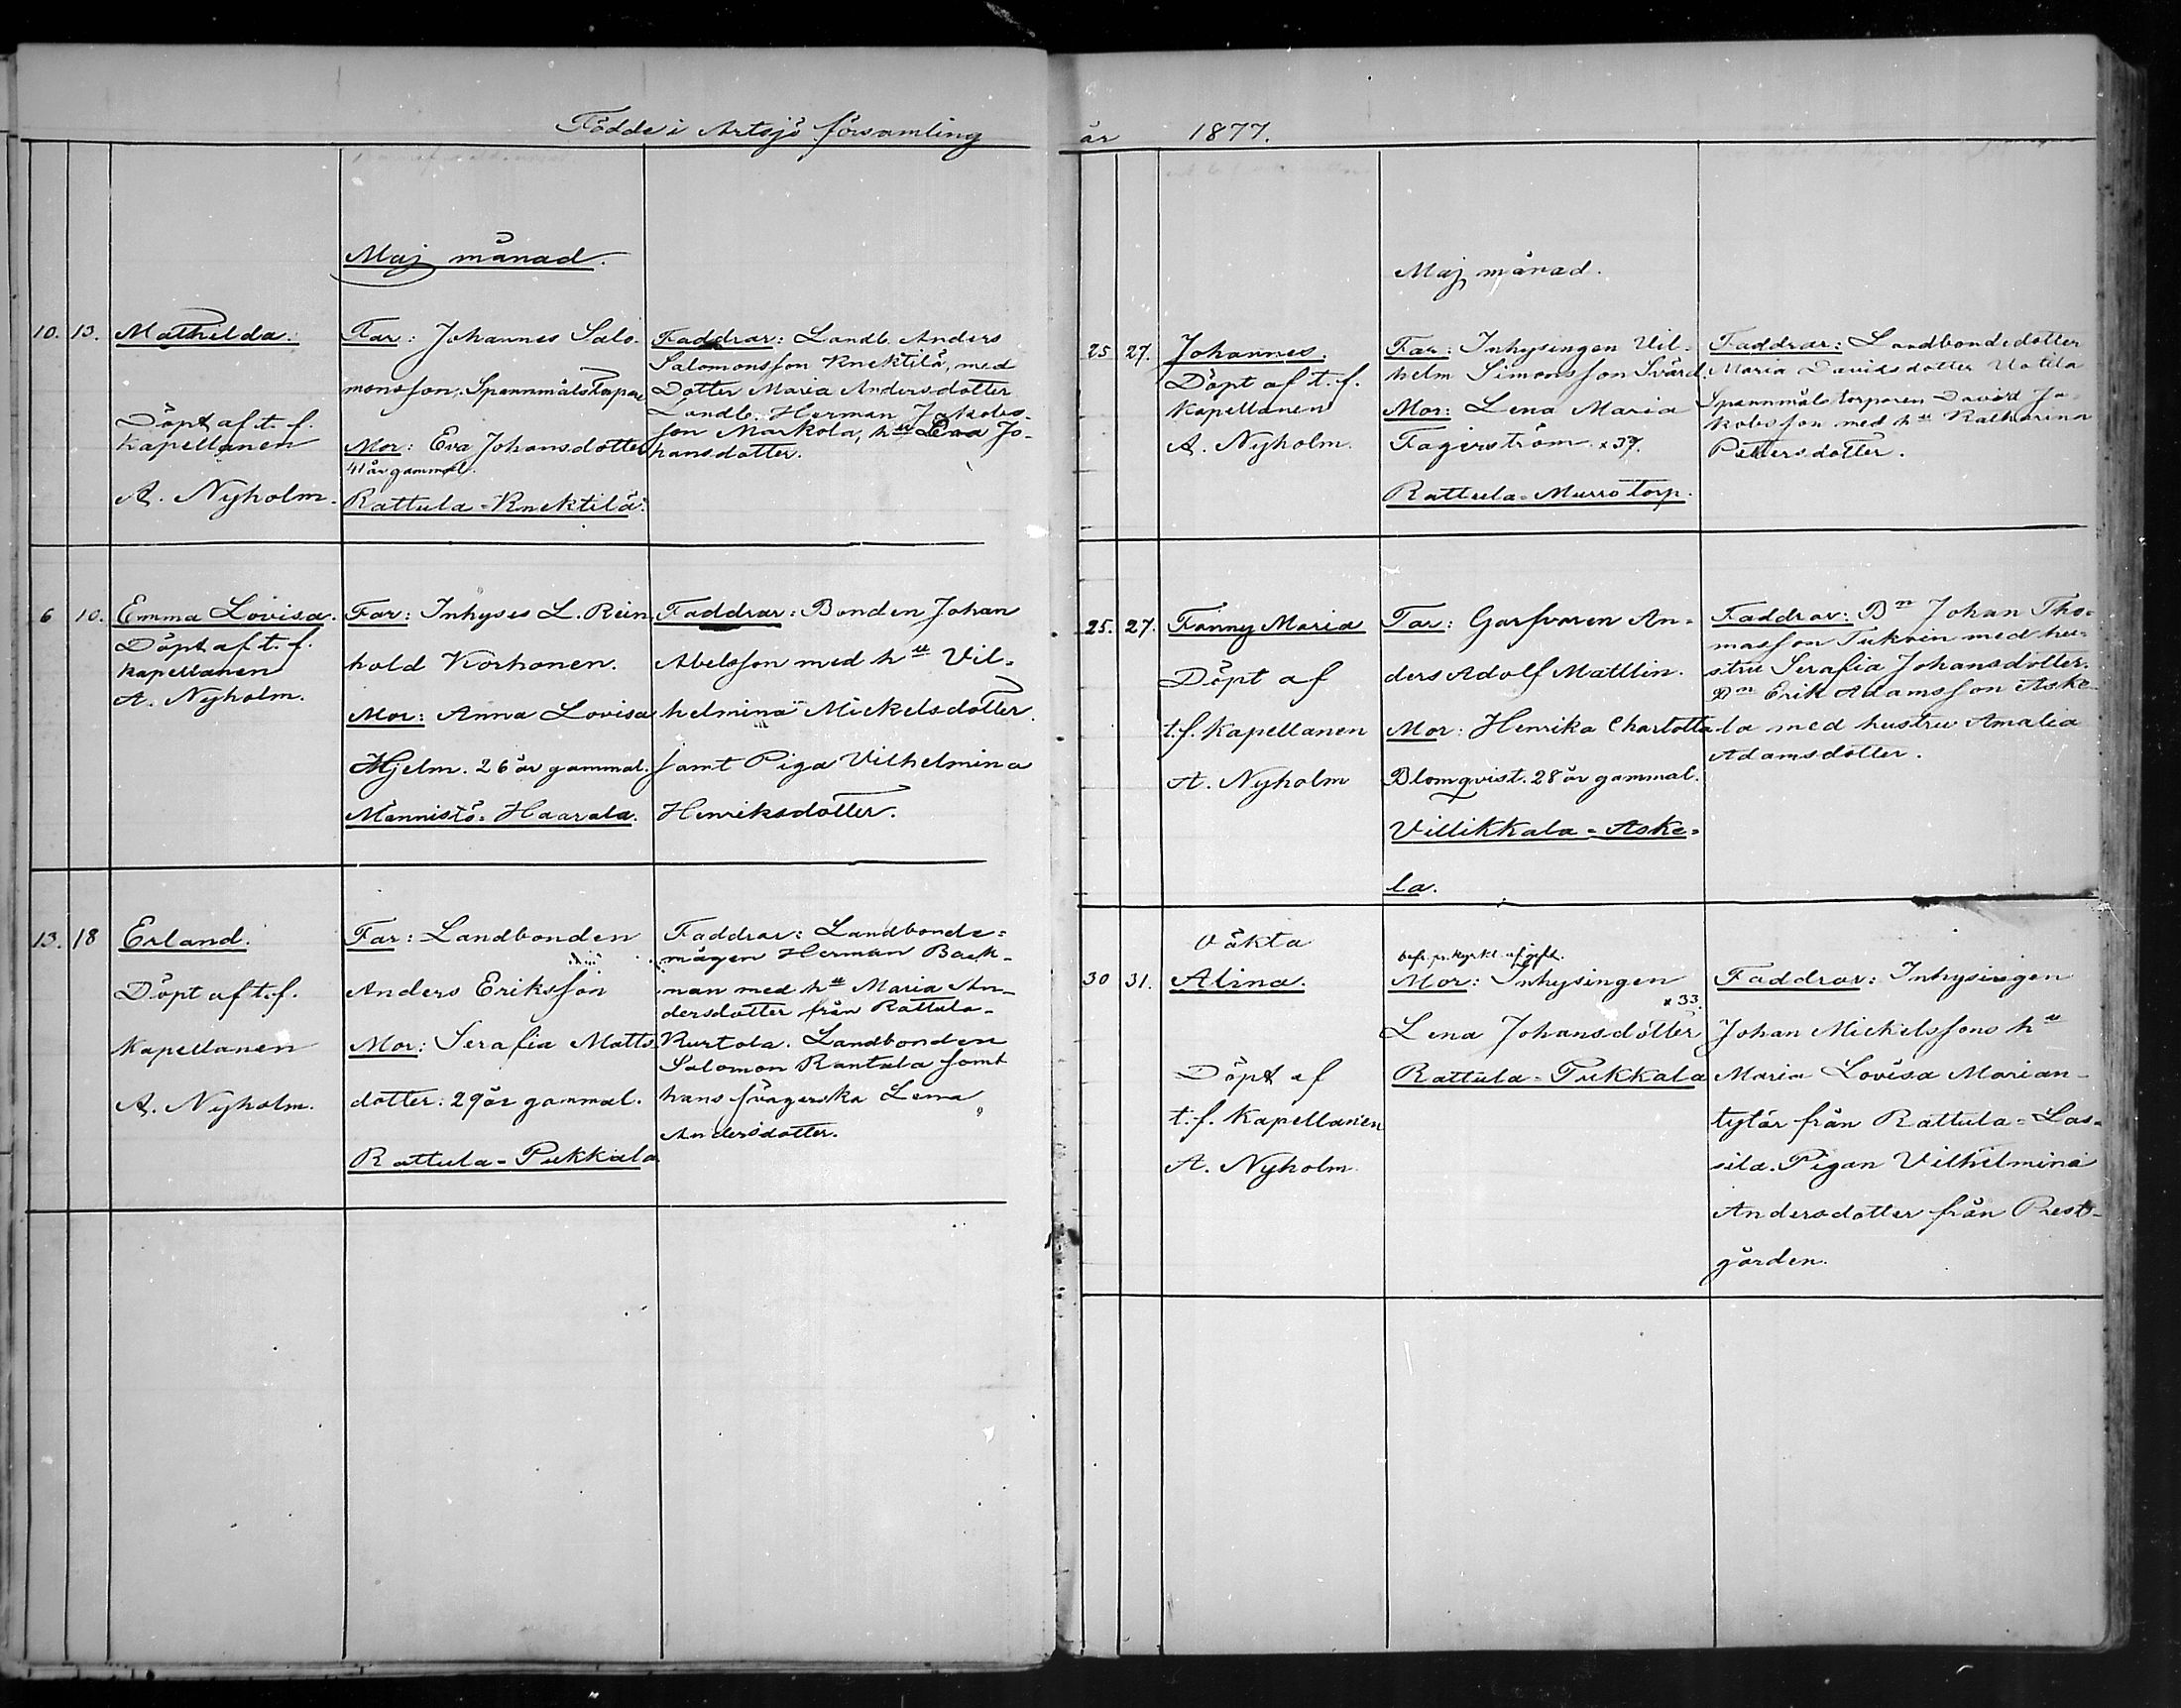 Födde i Artsjö församling
Maj månad.
10. 13. Mathilda.
Döpt af t. f.
Kapellanen
A. Nyholm.
Far: Johannes Salo-
monsson. Spannmålstorpare
Mor: Eva Johansdotter
41 år gammal.
Rattula-Knektilä.
Faddrar: Landb. Anders
Salomonsson Knektilä, med
Dotter Maria Andersdotter
Landb. Herman Jakobs-
son Markola, hu Eva Jo-
hansdotter.
6 10. Emma Lovisa.
Döpt af t. f.
Kapellanen
A. Nyholm.
Far: Inhyses L. Rein
hold Korhonen.
Mor: Anna Lovisa
Hjelm. 26 år gammal.
Männistö-Haarala.
Faddrar: Bonden Johan
Abelsson med hu Vil-
helmina Mickelsdotter
samt Piga Vilhelmina
Henriksdotter.
13. 18 Erland.
Döpt af t. f.
Kapellanen
A. Nyholm.
Far: Landbonden
Anders Eriksson
Mor: Serafia Matts
dotter: 29 år gammal.
Rattula-Pukkala
Faddrar: Landbonde-
mågen Herman Back-
man med hu Maria An-
dersdotter från Rattula-
Kurtola. Landbonden
Salomon Rantala samt
hans svägerska Lena
Andersdotter.
år 1877.
Maj månad.
25 27. Johannes.
Döpt af t. f.
Kapellanen
A. Nyholm.
Far: Inhysingen Vil-
helm Simonsson Svärd.
Mor: Lena Maria
Fagerström. x 37.
Rattula-Murro torp.
Faddrar: Landbondedotter
Maria Davidsdotter Uotila
Spannmåls torparen David Ja-
kobsson med hu Katharina
Pettersdotter.
25. 27. Fanny Maria
Döpt af
t. f. Kapellanen
A. Nyholm
Far: Garfvaren An-
ders Adolf Mattlin.
Mor: Henrika Charlotta
Blomqvist. 28 år gammal.
Villikkala-Aske-
la.
Faddrar: Bn Johan Tho-
masson Tukain med hu-
stru Serafia Johansdotter.
Bn Erik Adamsson Aske-
la med hustru Amalia
Adamsdotter.
Oäkta
30 31. Alina.
Döpt af
t. f. Kapellanen
A. Nyholm
Mor: Inhysingen
x 33.
Lena Johansdotter
Rattula-Pukkala
Faddrar: Inhysingen
Johan Mickelssons hu
Maria Lovisa Marian-
tytär från Rattula-Las-
sila. Pigan Vilhelmina
Andersdotter från Prest-
gården.